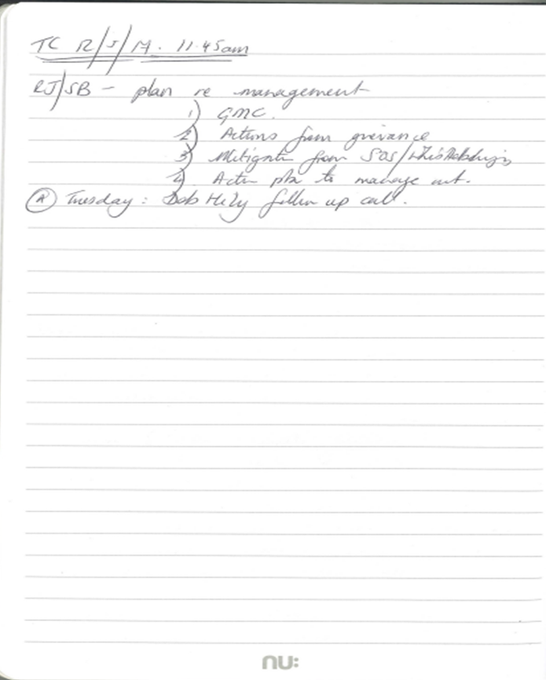 TC R/J/M. 11.45am
RJ/SB - plan re management
1) GMC.
2) Actions from grievance
3) Mitigate from SOS/whistleblowing
4) Action plan to manage out.
(A) Tuesday: Deb follow up call.
nu: